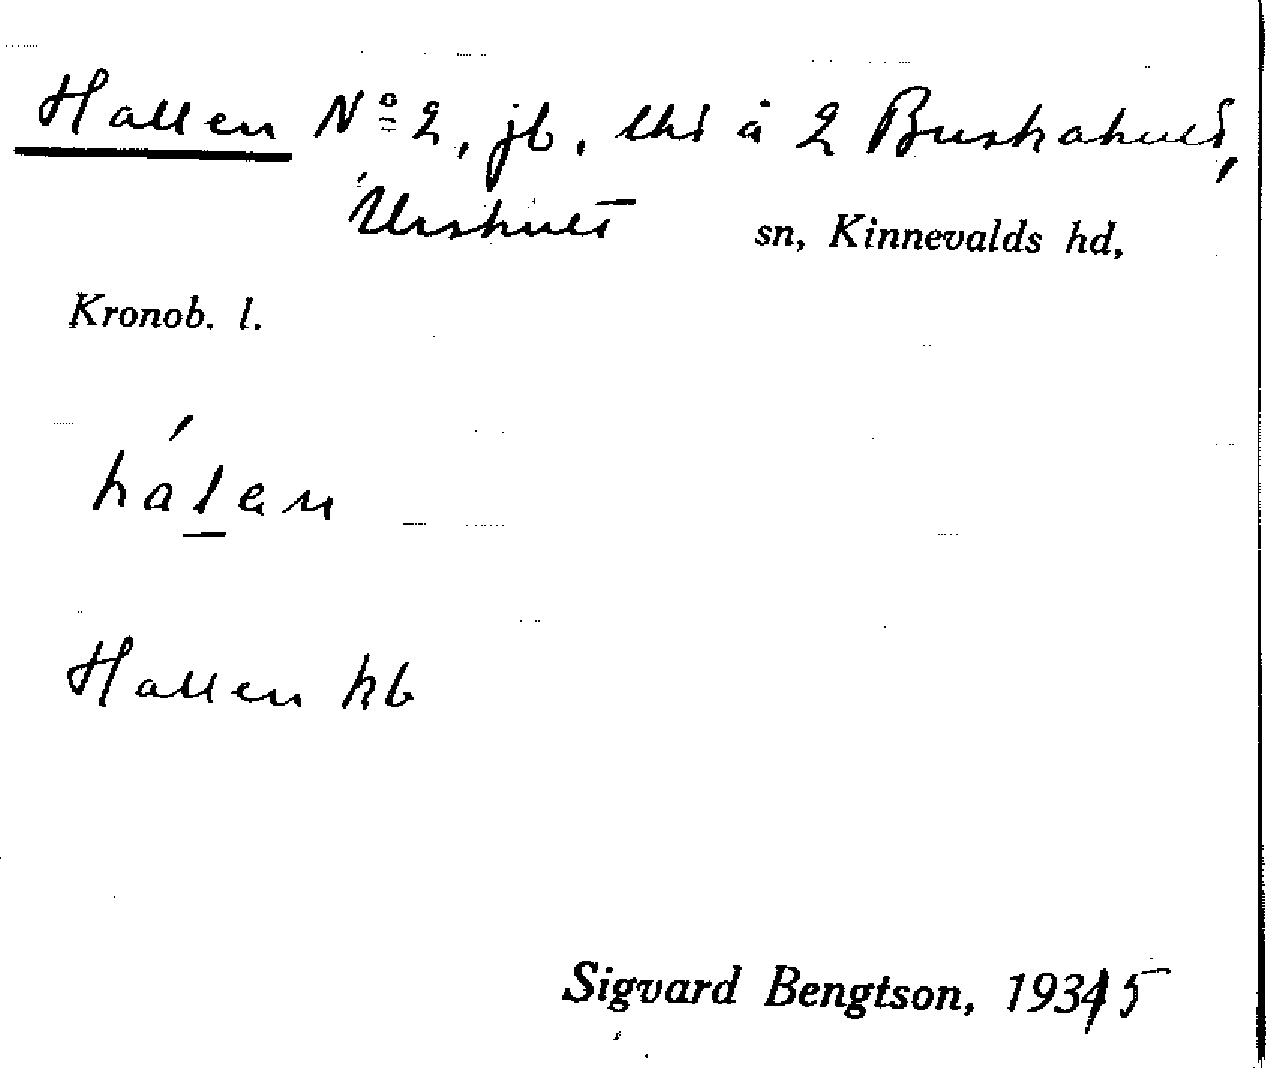 Hallen Nº 2, jb. lht å 2 Buskahult,
Urshult sn, Kinnevalds hd,
Kronob. l.
hálan
Hallen kb
Sigvard Bengtson, 1935